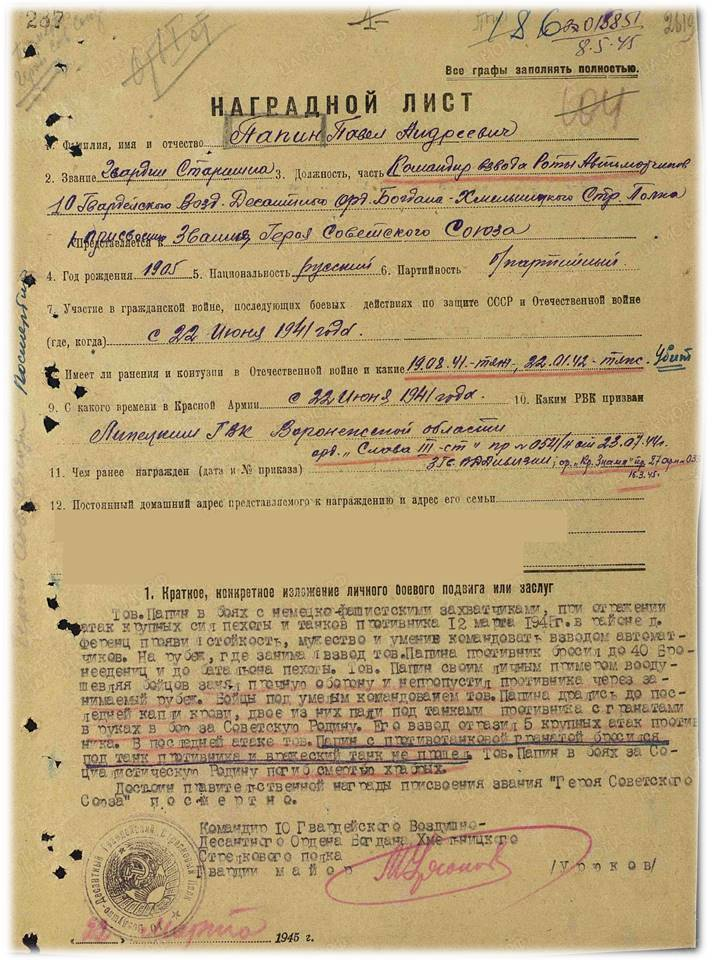 207
186
Зв 013851
8.5.45
2619
Все графы заполнять полностью.
НАГРАДНОЙ ЛИСТ
604
1. Фамилия, имя и отчество Папин Павел Андреевич
2. Звание Гвардии Старшина 3. Должность, часть Командир взвода Роты Автоматчиков
10 Гвардейского Возд-Десантного орд. Богдана-Хмельницкого Стр. Полка
Представляется к присвоению Звания Героя Советского Союза
4. Год рождения 1905 5. Национальность русский 6. Партийность б/партийный
7. Участие в гражданской войне, последующих боевых действиях по защите СССР и Отечественной войне
(где, когда) с 22 Июня 1941 года.
8. Имеет ли ранения и контузии в Отечественной войне и какие 19.08.41.-тяж., 22.01.42-тяж. Убит
Посмертно
9. С какого времени в Красной Армии с 22 Июня 1941 года. 10. Каким РВК призван
Липецким ГВК Воронежской области
орд. „Слава III-ст" пр №052/н от 23.07.44г.
11. Чем ранее награжден (дата и № приказа) 3 Гв. ВДДивизии; ор. „Кр. Знамя" пр. 27 арм №03
15.3.45.
12. Постоянный домашний адрес представляемого к награждению и адрес его семьи
1. Краткое, конкретное изложение личного боевого подвига или заслуг
Тов.Папин в боях с немецко-фашистскими захватчиками, при отражении
атак крупных сил пехоты и танков противника 12 марта 1945г. в районе д.
Ференц проявил стойкость, мужество и умение командовать взводом автомат-
чиков. На рубеж, где занимал взвод тов.Папина противник бросил до 40 Бро-
неедениц и до батальона пехоты. Тов. Папин своим личным примером вооду-
шевляя бойцов занял прочную оборону и непропустил противника через за-
нимаемый рубеж. Бойцы под умелым командованием тов.Папина дрались до пос-
ледней капли крови, двое из них пали под танками противника с гранатами
в руках в бою за Советскую Родину. Его взвод отразил 5 крупных атак против
ника. В последней атаке тов. Папин с противотанковой гранатой бросился
под танк противника и вражеский танк не прошел. Тов.Папин в боях за Со-
циалистическую Родину погиб смертью храбрых.
Достоин правительственной награды присвоения звания "Героя Советского
Союза" посмертно.
Командир 10 Гвардейского Воздушно-
Десантного Ордена Богдана Хмельницкого
Стрелкового полка
Гвардии майор /Урюков/
22 Марта 1945 г.